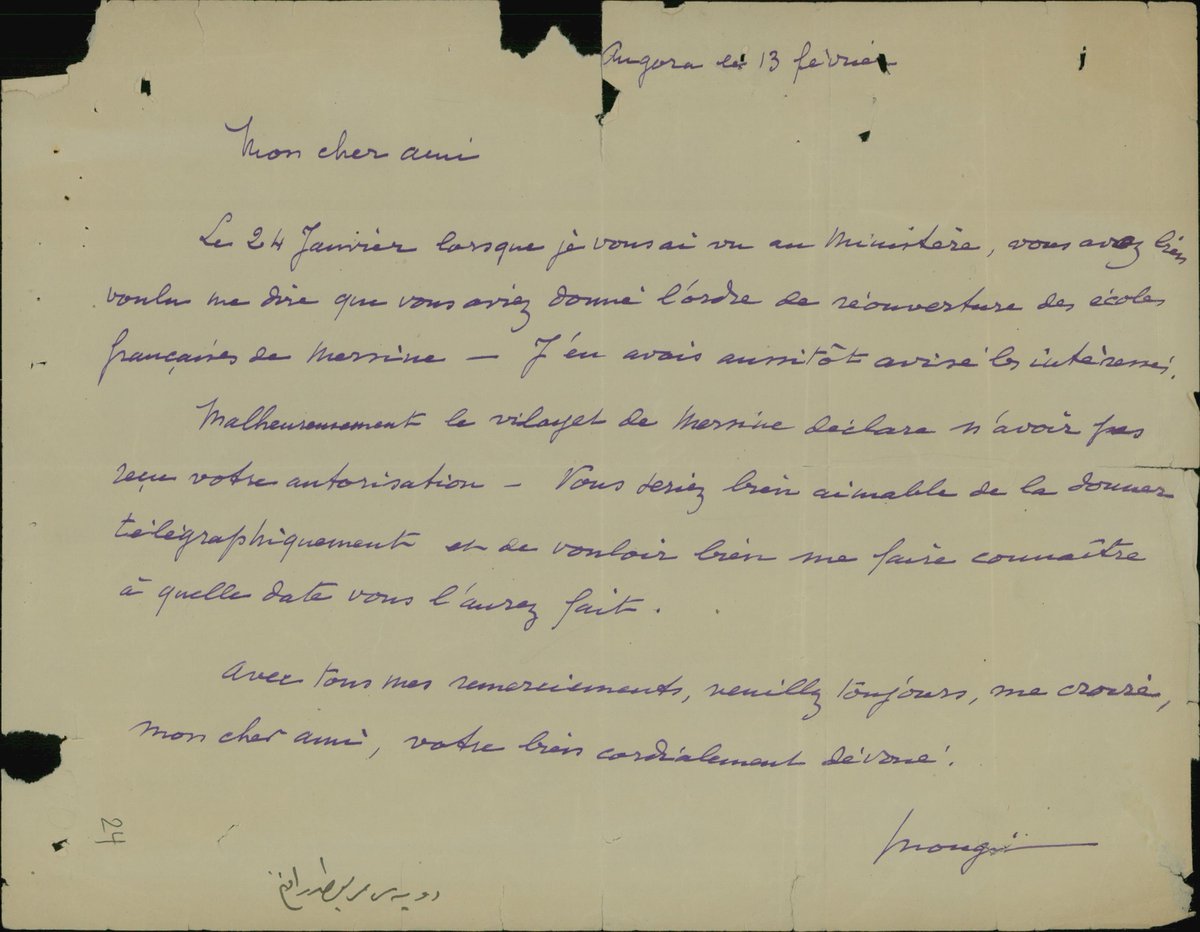 Angora le 13 février
Mon cher ami
Le 24 Janvier lorsque je vous ai vu au Ministère, vous avez bien
voulu me dire que vous aviez donné l'ordre de réouverture des écoles
françaises de Mersine — J'en avais aussitôt avisé les intéressés.
Malheureusement le vilayet de Mersine déclare n'avoir pas
reçu votre autorisation — Vous seriez bien aimable de la donner
télégraphiquement et de vouloir bien me faire connaître
à quelle date vous l'aurez fait.
Avec tous mes remerciements, veuillez toujours, me croire,
mon cher ami, votre bien cordialement dévoué.
Mougin
24